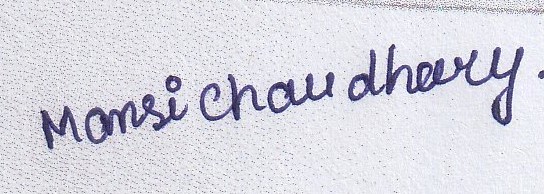 Mansi chaudhary.